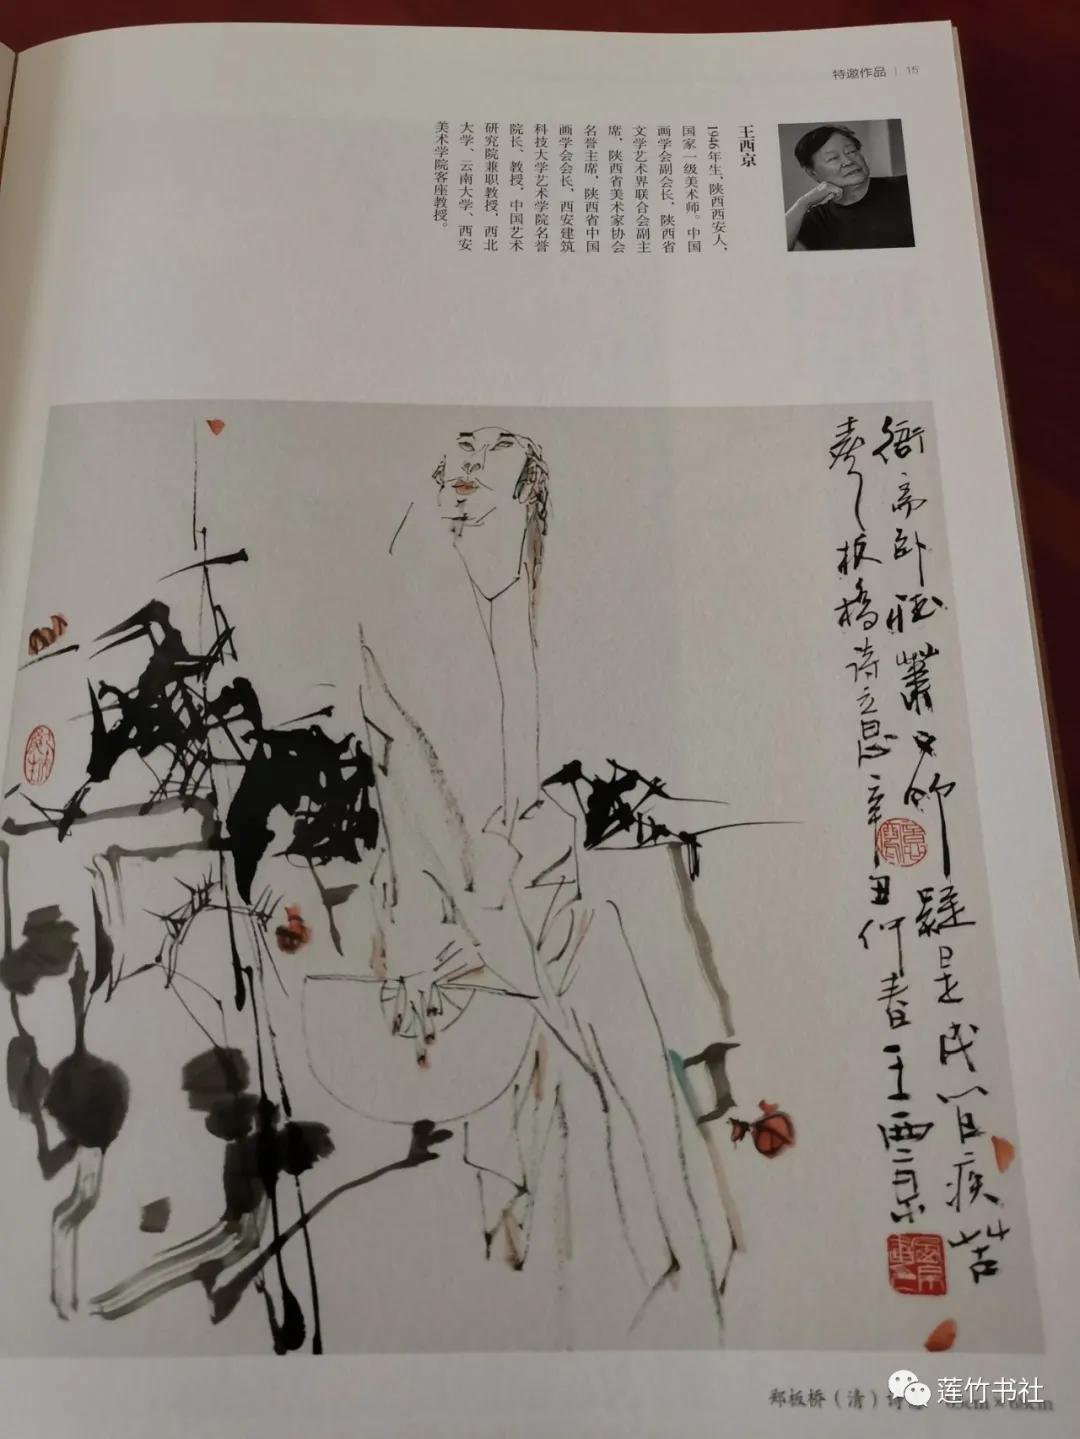 特邀作品 | 15
王西京
1946年生，陕西西安人，
国家一级美术师。中国
画学会副会长，陕西省
文学艺术界联合会副主
席，陕西省美术家协会
名誉主席，陕西省中国
画学会会长，西安建筑
科技大学艺术学院名誉
院长、教授，中国艺术
研究院兼职教授，西北
大学、云南大学、西安
美术学院客座教授。
衙斋卧听萧萧竹疑是民间疾苦
声板桥诗意辛丑仲春王西京
郑板桥（清）诗
莲竹书社